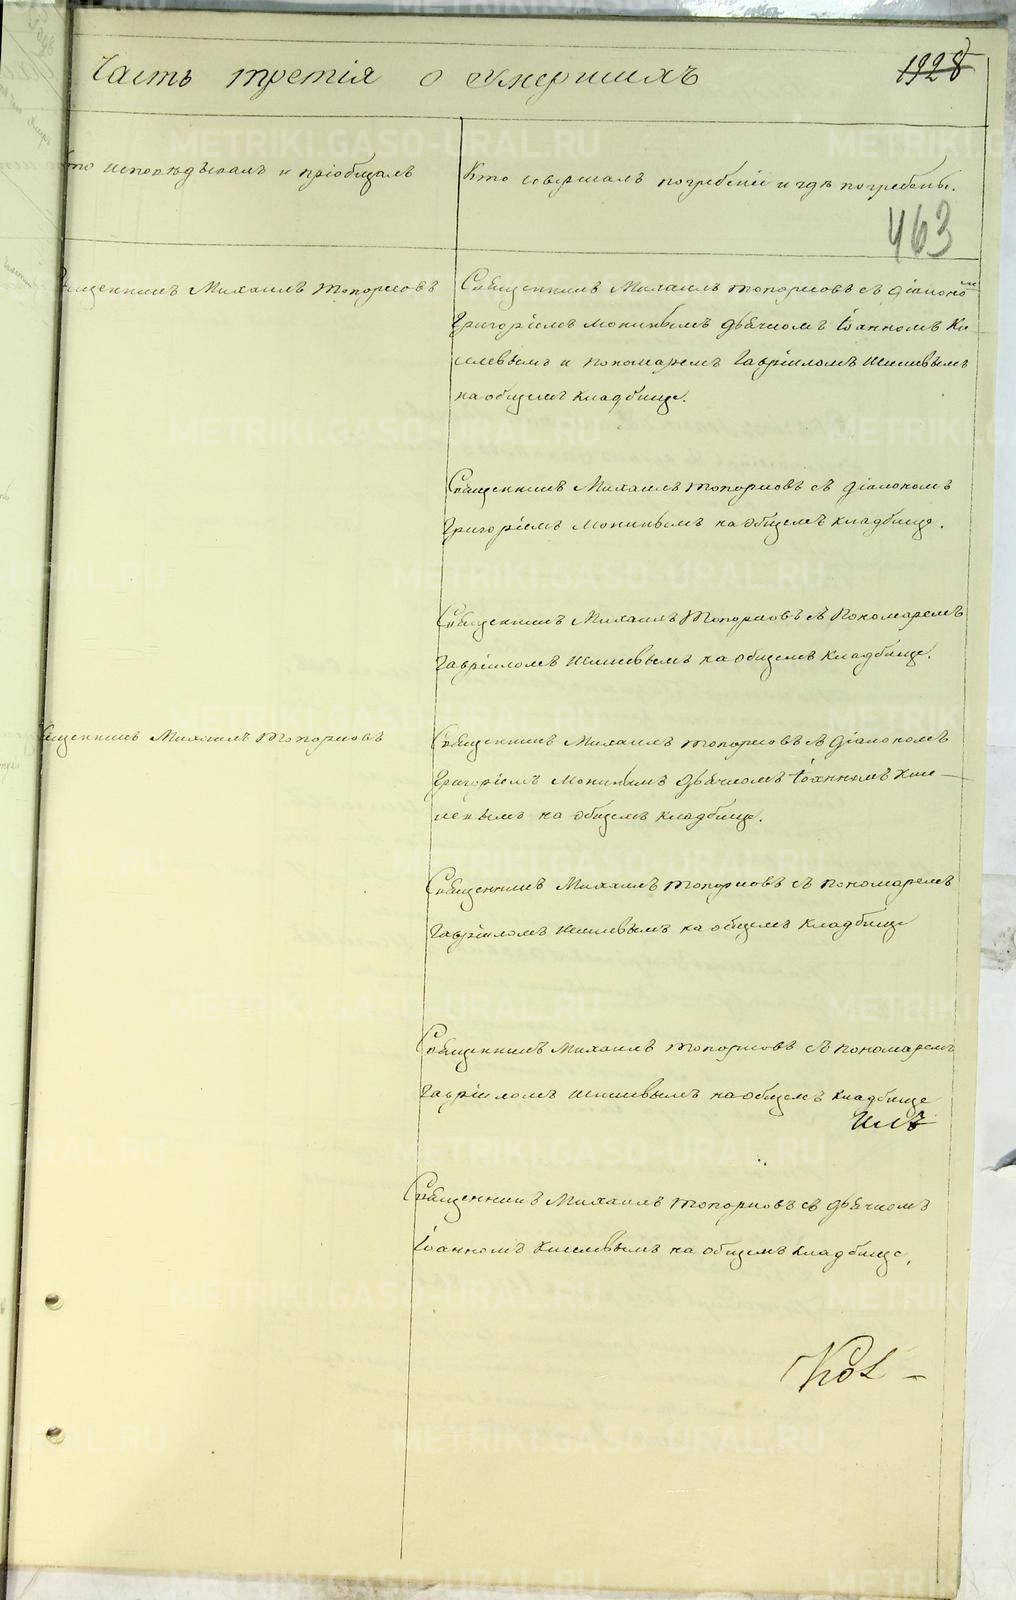 Часть третія о Умершихъ
1928
Кто исповѣдывалъ и пріобщалъ
Кто совершалъ погребеніе и гдѣ погребены.
463
Священникъ Михаилъ Топорковъ
Священникъ Михаилъ Топорковъ съ діакономъ
Григоріемъ дьячкомъ Іоанномъ Ки
селевымъ и пономаремъ Гавріиломъ
на общемъ кладбище.
Священникъ Михаилъ Топорковъ съ діакономъ
Григоріемъ на общемъ кладбище.
Священникъ Михаилъ Топорковъ съ Пономаремъ
Гавріиломъ на общемъ кладбище.
Священникъ Михаилъ Топорковъ
Священникъ Михаилъ Топорковъ съ діакономъ
Григоріемъ дьячкомъ Іоанномъ Кисе
левымъ на общемъ кладбище.
Священникъ Михаилъ Топорковъ съ пономаремъ
Гавріиломъ на общемъ кладбище
Священникъ Михаилъ Топорковъ съ пономаремъ
Гавріиломъ на общемъ кладбище
Священникъ Михаилъ Топорковъ съ дьячкомъ
Іоанномъ Киселевымъ на общемъ кладбище.
METRIKI.GASO-URAL.RU